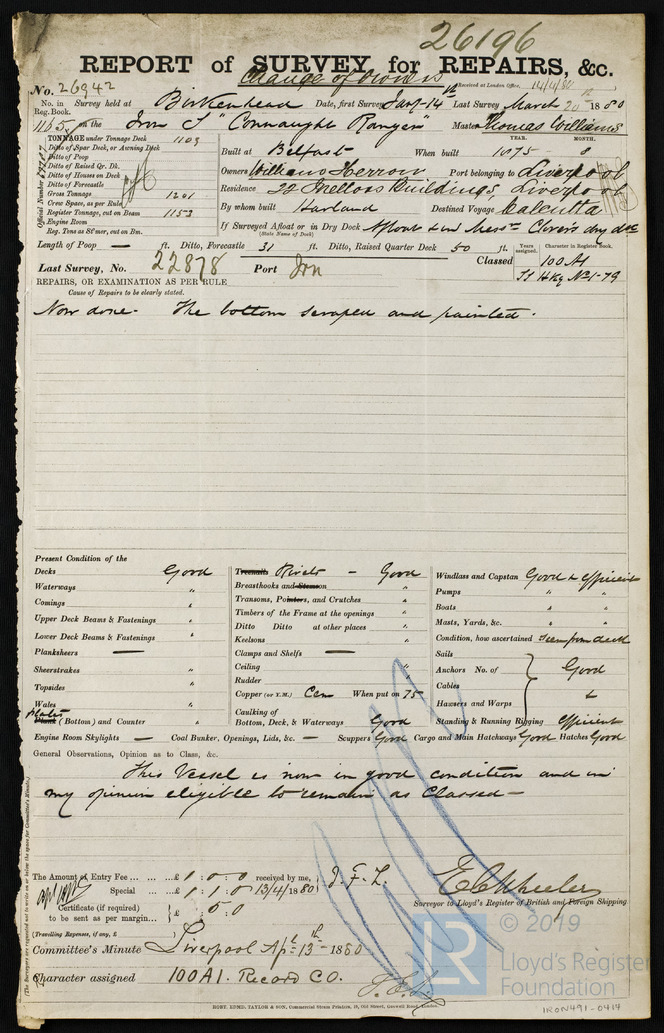 26196
REPORT of SURVEY for REPAIRS, &c.
Change of Owners
No. 26942 Received at London Office, 14/4/80
No. in Reg. Book. Survey held at Birkenhead Date, first Survey Jany 14th Last Survey March 20th 1880
1165 on the Iron S "Connaught Ranger" Master Thomas Williams
TONNAGE under Tonnage Deck 1103
Ditto of Spar Deck, or Awning Deck
Ditto of Poop
Ditto of Raised Qr. Dk.
Ditto of Houses on Deck
Ditto of Forecastle
Gross Tonnage 1201
Crew Space, as per Rule
Register Tonnage, cut on Beam 1153
Engine Room
Reg. Tons as S'mer, cut on Bm.
Official Number
YEAR. MONTH.
Built at Belfast When built 1875 8
Owners William Herron Port belonging to Liverpool
Residence 22 Mellors Buildings, Liverpool
By whom built Harland Destined Voyage Calcutta
If Surveyed Afloat or in Dry Dock Afloat & in Messrs Clover's dry dock
(State Name of Dock)
Length of Poop — ft. Ditto, Forecastle 31 ft. Ditto, Raised Quarter Deck 50 ft.
Years assigned. Character in Register Book.
Last Survey, No. 22878 Port Irn Classed 100 A1
SS Hkg No1-79
REPAIRS, OR EXAMINATION AS PER RULE
Cause of Repairs to be clearly stated.
Now done. The bottom scraped and painted.
Present Condition of the
Decks Good
Waterways "
Comings "
Upper Deck Beams & Fastenings "
Lower Deck Beams & Fastenings "
Planksheers —
Sheerstrakes "
Topsides "
Wales "
Plates
Plank (Bottom) and Counter "
Treenails Rivets — Good
Breasthooks and Stemson "
Transoms, Pointers, and Crutches "
Timbers of the Frame at the openings "
Ditto Ditto at other places "
Keelsons "
Clamps and Shelfs —
Ceiling "
Rudder "
Copper (or Y.M.) Cem When put on 75
Caulking of
Bottom, Deck, & Waterways Good
Windlass and Capstan Good & efficient
Pumps " "
Boats " "
Masts, Yards, &c. " "
Condition, how ascertained Seen from deck
Sails
Anchors No. of Good
Cables "
Hawsers and Warps
Standing & Running Rigging efficient
Engine Room Skylights — Coal Bunker, Openings, Lids, &c. — Scuppers Good Cargo and Main Hatchways Good Hatches Good
General Observations, Opinion as to Class, &c.
This Vessel is now in good condition and in
my opinion eligible to remain as Classed —
The Amount of Entry Fee ... ... £ 1 : 0 : 0 received by me,
Special ... £ 1 : 1 : 0 13/4/1880 J. F. L.
Certificate (if required) to be sent as per margin... £ : 5 . 0
E C Wheeler
Surveyor to Lloyd's Register of British and Foreign Shipping
(Travelling Expenses, if any, £ )
Committee's Minute Liverpool Apl 13th 1880
Character assigned 100A1. Record CO.
RONY, EDMD. TAYLOR & SON, Commercial Steam Printers, 19, Old Street, Goswell Road, London.
(The Surveyors are requested not to write on or below the space for Committee's Minute.)
© 2019
LR
Lloyd's Register
Foundation
IRON491-0414